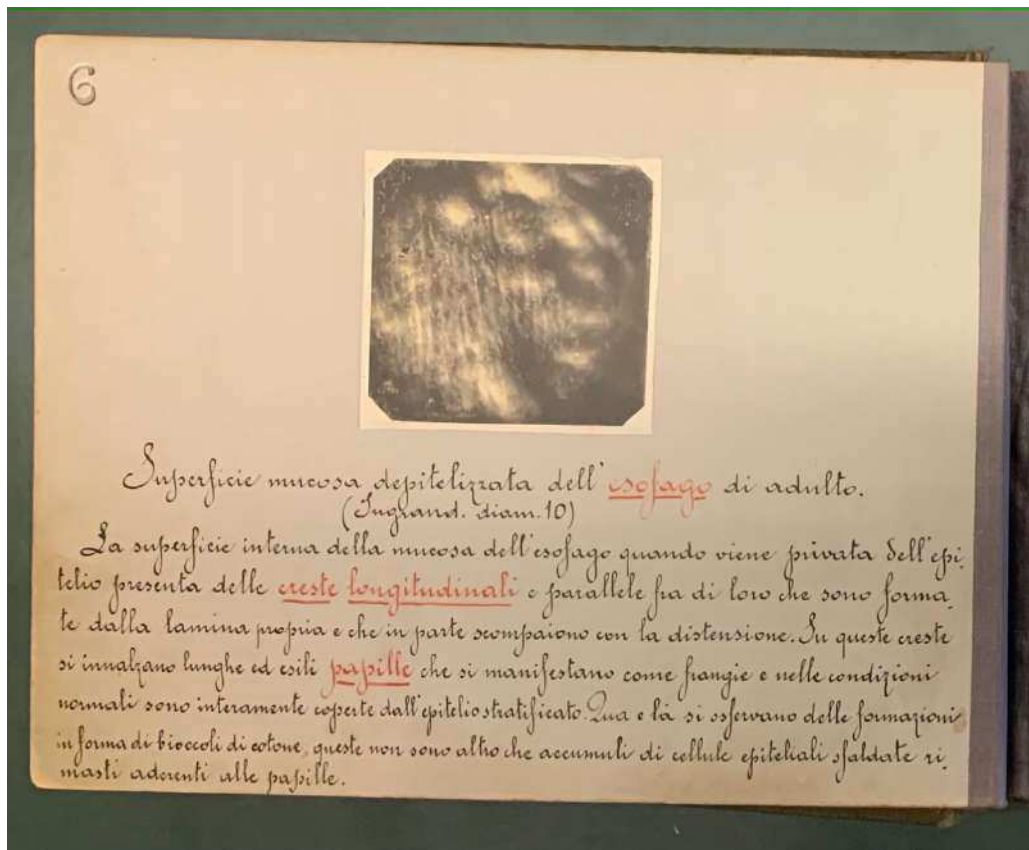 6
Superficie mucosa depitelizzata dell'esofago di adulto.
(Ingrand. diam. 10)
La superficie interna della mucosa dell'esofago quando viene privata dell'epi-
telio presenta delle creste longitudinali e parallele fra di loro che sono forma-
te dalla lamina propria e che in parte scompaiono con la distensione. Su queste creste
si innalzano lunghe ed esili papille che si manifestano come frangie e nelle condizioni
normali sono interamente coperte dall'epitelio stratificato. Qua e là si osservano delle formazioni
in forma di bioccoli di cotone, queste non sono altro che accumuli di cellule epiteliali sfaldate ri-
masti aderenti alle papille.